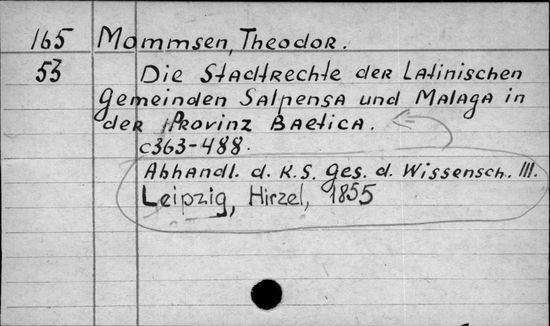 165 Mommsen, Theodor.
53 Die Stadtrechte der Latinischen
Gemeinden Salpensa und Malaga in
der Provinz Baetica.
c363-488.
Abhandl. d. K.S. Ges. d. Wissensch. III.
Leipzig, Hirzel, 1855